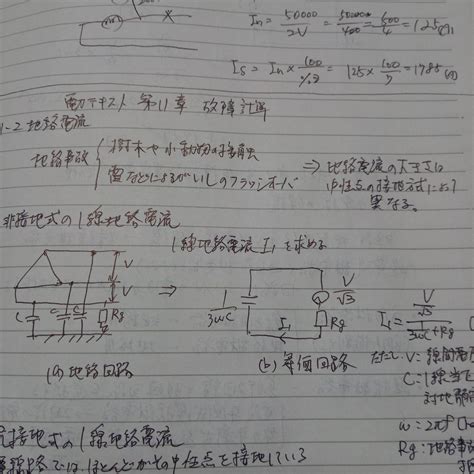 In = 50000/2V = 50000/400 = 500/4 = 125(A)
Is = In × 100/%Z = 125 × 100/7 = 1785(A)
電力テキスト 第11章 故障計算
1-2 地絡電流
地絡事故 { 樹木や小動物の接触
雷などによるがいしのフラッシオーバ
⇒ 地絡電流の大きさは
中性点の接地方式によって
異なる。
非接地式の1線地絡電流
1線地絡電流 I1 を求める
V
V
C C C Rg
(a) 地絡回路
⇒
1/3ωC
V/√3
Rg
I1
(b) 等価回路
I1 = V/√3 / 1/3ωC + Rg
ただし V: 線間電
C: 1線当
対地静
ω = 2πf
Rg: 地絡事
接地式の1線地絡電流
線路ではほとんどがその中性点を接地している